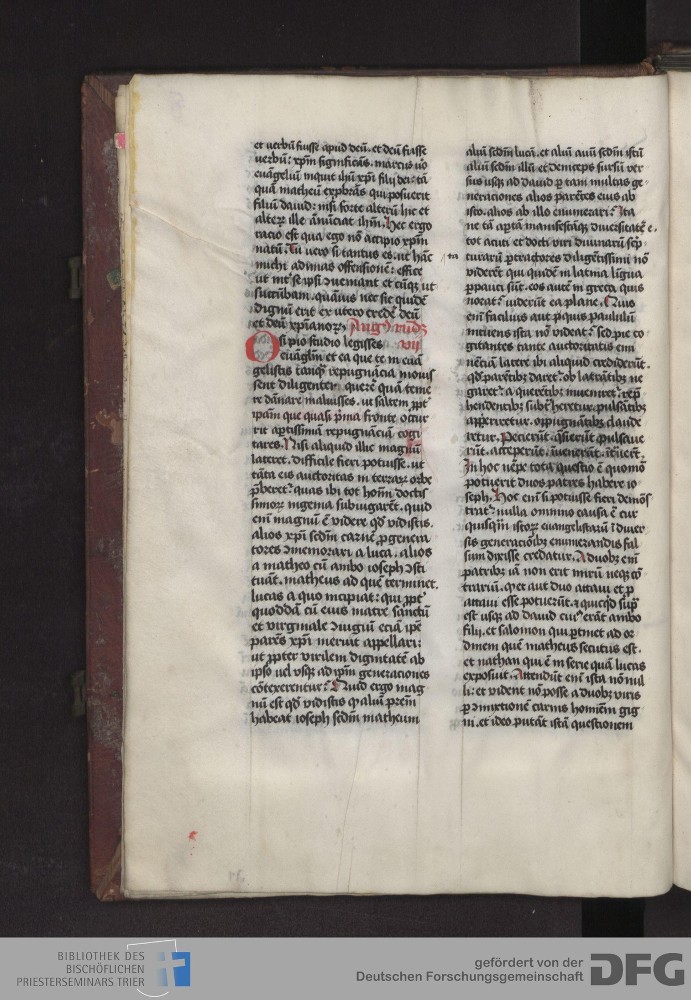 et uerbū fuisse apud deū. et deū fuisse
uerbū: xp̄m significās. marcus uo
euāgeliū inquit ihū xp̄i filij dei: tā
quā matheū exprobrās qui posuerit
filiū dauid: nisi forte alterū hic et
alteꝝ ille ānūciat ihm̄. Hec ergo
racio est qua ego nō accipio xp̄m
natū. Tu uero si tantus es. ut hāc
michi adimas offensionē: effice
ut int̄ se ipsi ꝯueniant et cūqꝫ ut
sucūbam. quāuis nec sic quidē
dignū erit ex utero credē deū
et deū xp̄ianoꝝ. Aug9 rn̄dꝫ
O si pio studio legisses vii
euāgl̄m et ea que te in euā
gelistis tanqꝫ repugnācia mouis
sent diligenter querē quā teme
re dānare maluisses. ut saltem ꝓpt̄
ip̄am que quasi p̄ima fronte occur
rit aptissimā repugnāciā cogi
tares. Nisi aliquid illic magnū
lateret. difficile fieri potuisse. ut
tāta eis auctoritas in terraꝝ orbe
p̄beret' quas ibi tot homī doctis
simoꝝ ingenia subiugarēt. quid
enī magnū ē videre qd̄ vidistis.
alios xp̄i scd̄m carnē ꝓgenera
tores ꝯmemorari a luca. alios
a matheo cū ambo ioseph ꝯsti
tuāt. matheus ad quē terminet.
lucas a quo incipiat: qui ꝓpt'
quoddā cū eius matre sanctū
et virginale ꝯiugiū eciā ip̄e
parēs xp̄i meruit appellari:
ut ꝓpter virilem dignitatē ab
ipso uel vsqꝫ ad ip̄m generaciones
cōtexerentur: Quid ergo mag
nū est qd̄ vidistis ꝙ aliū p̄rem
habeat ioseph scd̄m matheum
aliū scd̄m lucā. et aliū auū scd̄m istū
aliū scd̄m illū et deinceps sursū ver
sus usqꝫ ad dauid ꝑ tam multas ge
neraciones alios parētes eius ab
isto. alios ab illo enumerari: Ita
ta
ne tā apta manifestāqꝫ diuersitatē
tot acuti et docti viri diuinarū sc̄p
turarū ꝑtractores diligētissimi nō
viderēt qui quidē in latina lingua
ꝑpauci sūt. eos autē in greca quis
nocat: uiderūt ea plane. Quis
enī facilius aut p̄quis paululū
intuens ista nō videat: sed pie co
gitantes tante auctoritatis emi
nēciā latere ibi aliquid crediderūt.
qd̄ parētibꝫ daret' ob latrātibꝫ ne
garet' a querētibꝫ inueniret' rep̄
hendentibꝫ subt'heretur. pulsātibꝫ
apperiretur. oppugnātibꝫ claude
retur. Pecierūt. q̄sierūt. pulsaue
rūt. acceperūt. īuenerūt. īt'uerēt.
In hoc nēpe tota questio ē quomō
potuerit duos patres habere io
seph. Hoc enī si potuisse fieri demōs
trat': nulla omnino causa ē cur
quisqꝫ istoꝝ euangelistarū ī diuer
sis generacioībꝫ enumerandis fal
sum dixisse credatur. A duobꝫ enī
patribꝫ iā non erit mirū neqꝫ cō
trariū. ꝙ et aut duo attaui et ꝓ
attaui esse potuerūt. et quicqd̄ sup̄
est usqꝫ ad dauid cui9 erāt ambo
filij. et salomon qui ꝑtinet ad or
dinem quē matheus secutus est.
et nathan qui ē in serie quā lucas
exposuit. Attendūt enī ista nōnul
li: et vident nō posse a duobꝫ viris
ꝑ ꝯmixtionē carnis hominem gig
ni. et ideo putāt istā questionem
BIBLIOTHEK DES
BISCHÖFLICHEN
PRIESTERSEMINARS TRIER
gefördert von der
Deutschen Forschungsgemeinschaft
DFG